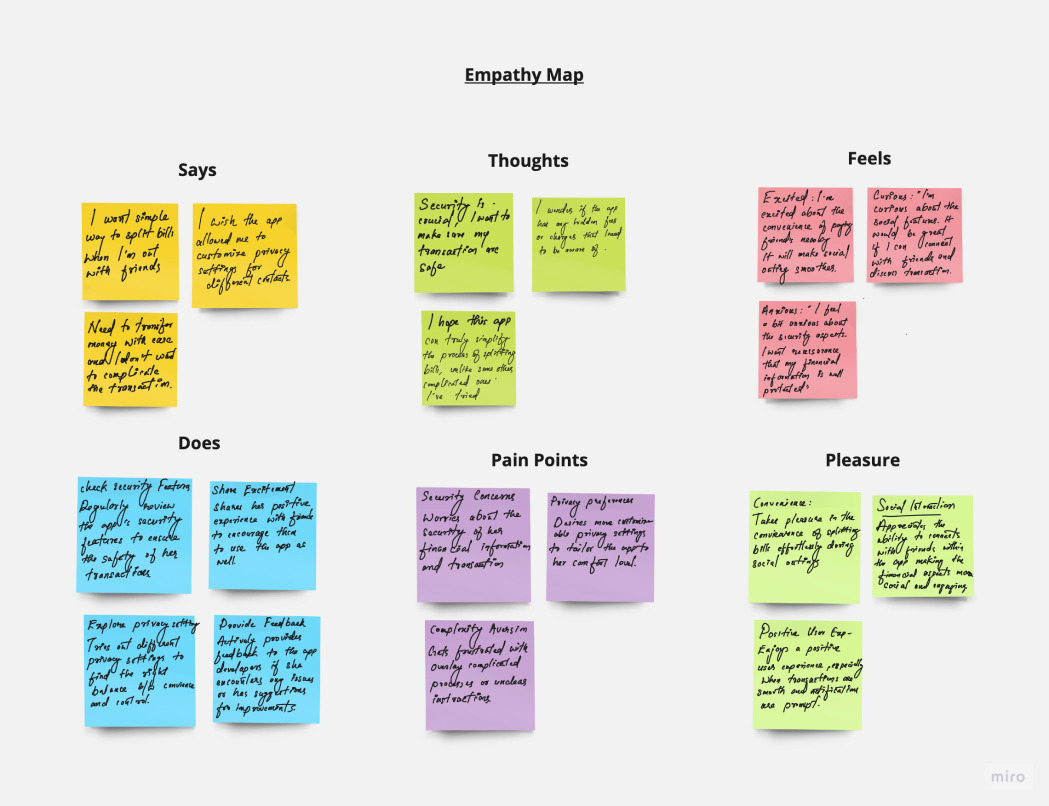 Empathy Map
Says
I want simple
way to split bills
when I'm out
with friends
I wish the app
allowed me to
customize privacy
settings for
different contacts
Need to transfer
money with ease
and I don't want
to complicate
the transaction.
Thoughts
Security is
crucial, I want to
make sure my
transaction are
safe
I wonder if the app
has any hidden fees
or charges that I need
to be aware of.
I hope this app
can truly simplify
the process of splitting
bills, unlike some other
complicated ones
I've tried
Feels
Excited: I'm
excited about the
convenience of
friends nearby
It will make social
outing smoother.
Curious: "I'm
curious about the
social features. It
would be great
if I can connect
with friends and
discuss transaction.
Anxious: "I feel
a bit anxious about
the security aspects.
I want reassurance
that my financial
information is well
protected"
Does
check security Features
Regularly review
the app's security
features to ensure
the safety of her
transactions
Share Excitement
shares her positive
experience with friends
to encourage them
to use the app as
well.
Explore privacy setting
Tries out different
privacy settings to
find the right
balance b/b convience
and control.
Provide Feedback
Actively provides
feedback to the app
developers if she
encounters any issues
or has suggestions
for improvements.
Pain Points
Security Concerns
Worries about the
security of her
financial information
and transaction
Privacy preferences
Desires more customiz-
able privacy settings
to tailor the app to
her comfort level.
Complexity Aversion
Gets frustrated with
overlay complicated
processes or unclear
instructions.
Pleasure
Convenience:
Takes pleasure in the
convinience of splitting
bills effortlessly during
social outings
Social Interaction
Appreciates the
ability to connects
with friends within
the app making the
financial aspects more
social and engaging.
Positive User Exp-
Enjoys a positive
user experience, especially
when transactions are
smooth and notifications
are prompt.
miro